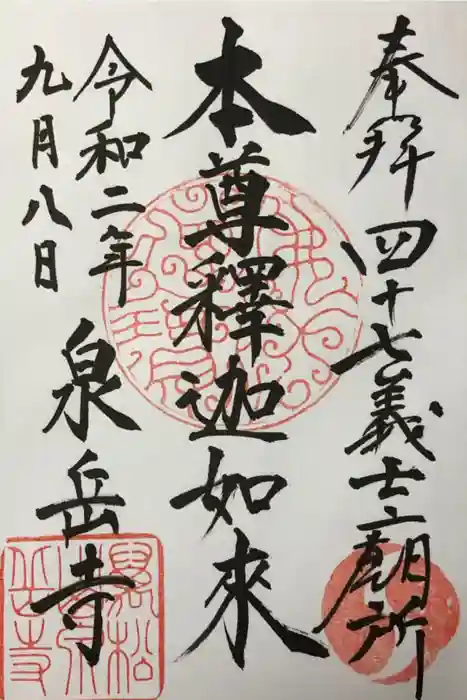 奉拜 四十七義士廟所
本尊釋迦如來
令和二年
九月八日
泉岳寺
萬松山泉岳寺